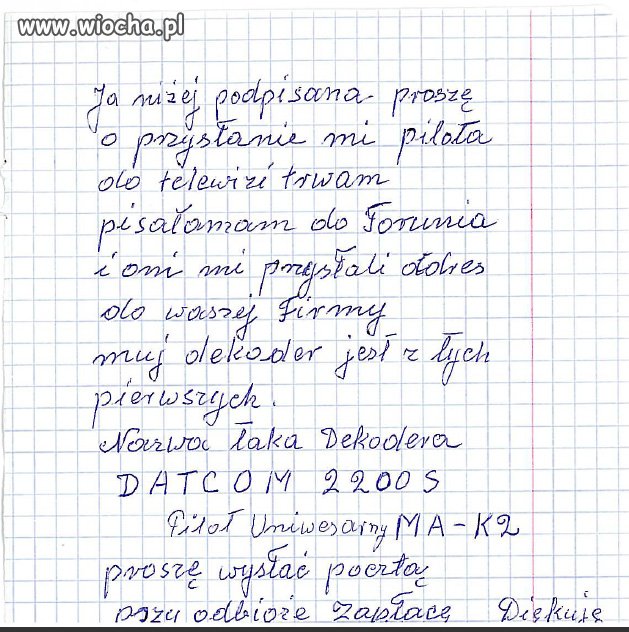 www.wiocha.pl
Ja niżej podpisana proszę
o przysłanie mi pilota
do telewizi trwam
pisałamam do Torunia
i oni mi przysłali adres
do waszej Firmy
muj dekoder jest z tych
pierwszych.
Nazwa taka Dekodera
DATCOM 2200S
Pilot Uniwesarny MA-K2
proszę wysłać pocztą
przu odbioże zapłacę Dziękuję